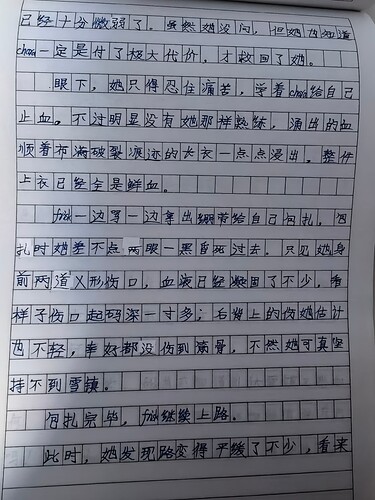 已经十分微弱了。虽然她没问，但她也知道
chara一定是付了极大代价，才救回了她。
眼下，她只得忍住痛苦，学着chara给自己
止血。不过明显没有她那样熟练，涌出的血
顺着布满破裂痕迹的长衣一点点浸出。整件
上衣已经全是鲜血。
frisk一边骂一边拿出绷带给自己包扎，包
扎时她差不点两眼一黑昏死过去。只见她身
前两道乂形伤口，血液已经凝固了不少，看
样子伤口起码深一寸多，后背上的伤她估计
也不轻，幸好都没伤到筋骨，不然她可真坚
持不到雪镇。
包扎完毕，frisk继续上路。
此时，她发现路变得平缓了不少，看来